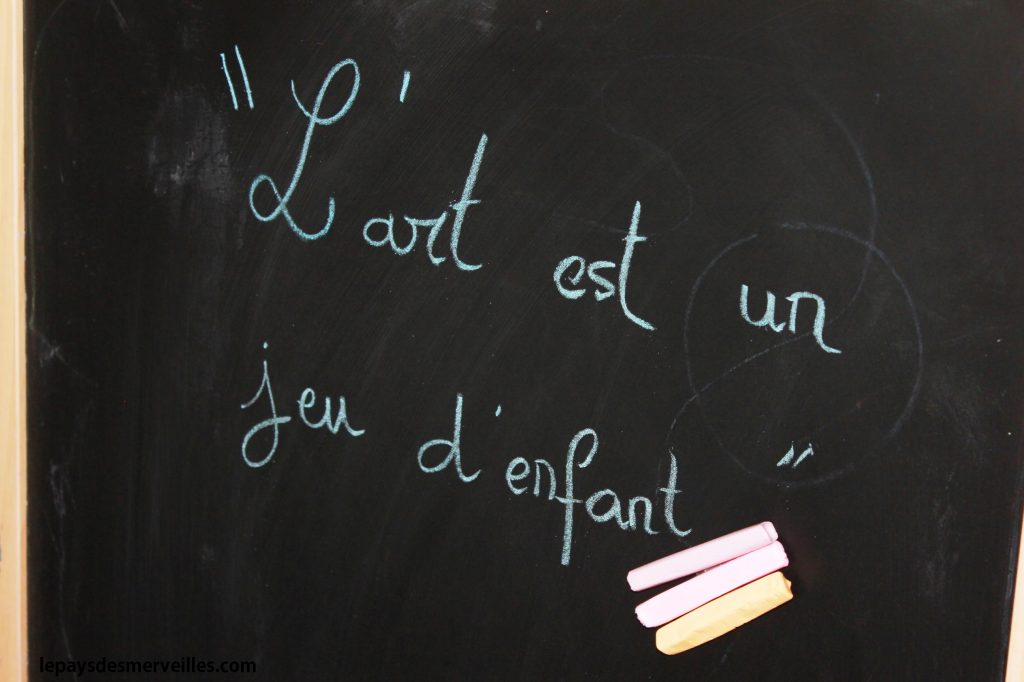 "L'art est un
jeu d'enfant"
lepaysdesmerveilles.com